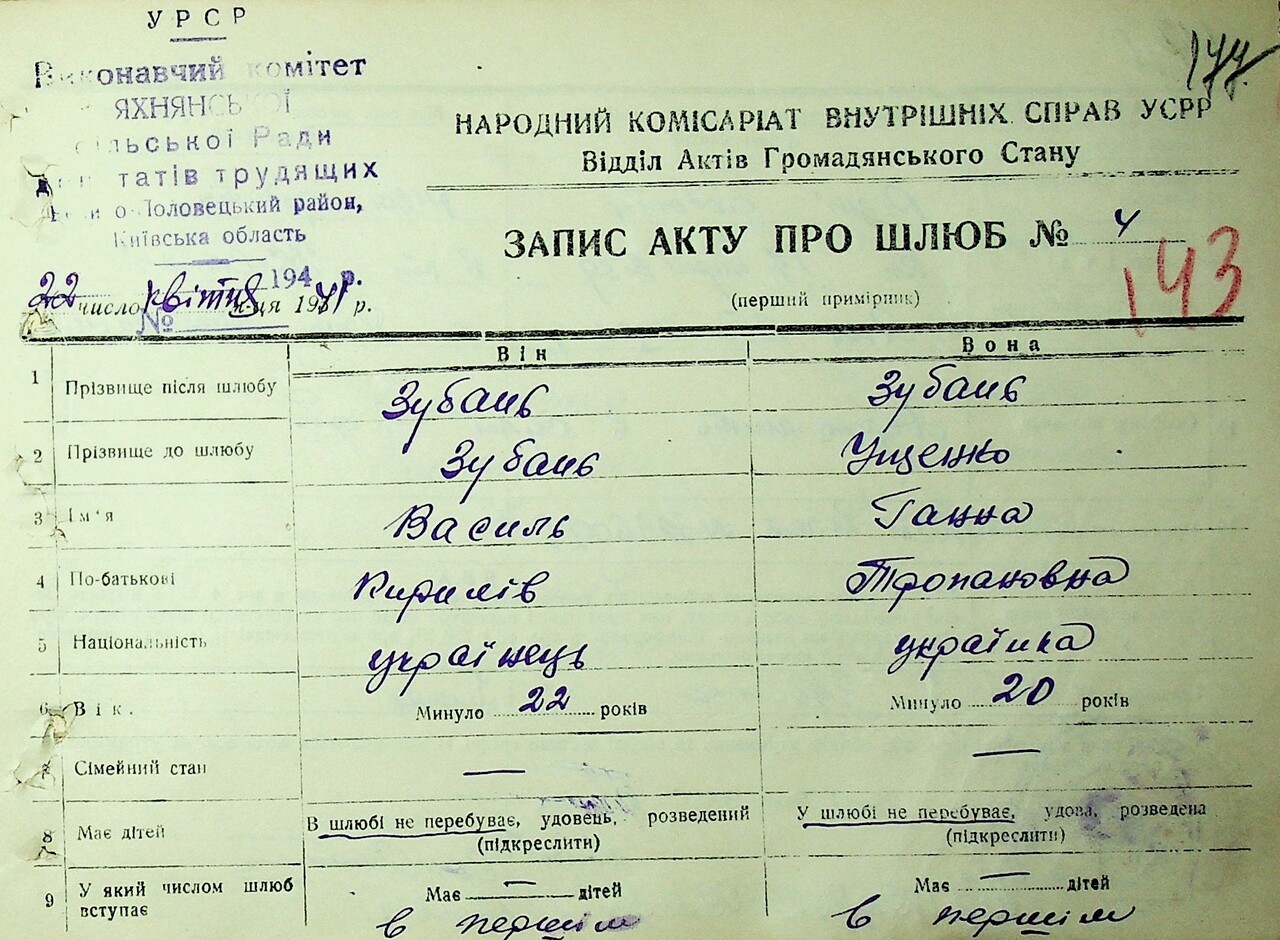 УРСР
177.
Виконавчий комітет
ЯХНЯНСЬКОЇ
сільської Ради
депутатів трудящих
Половецький район,
Київська область
194 р.
№
НАРОДНИЙ КОМІСАРІАТ ВНУТРІШНІХ СПРАВ УСРР
Відділ Актів Громадянського Стану
ЗАПИС АКТУ ПРО ШЛЮБ № 4
143
22 число квітня м-ця 1941 р.
(перший примірник)
Він Вона
1 Прізвище після шлюбу Зубань Зубань
2 Прізвище до шлюбу Зубань Ущенко
3 Ім'я Василь Ганна
4 По-батькові Кирилів Тропановна
5 Національність українець українка
6 Вік. Минуло 22 років Минуло 20 років
7 Сімейний стан — —
8 Має дітей В шлюбі не перебуває, удовець, розведений У шлюбі не перебуває, удова, розведена
(підкреслити) (підкреслити)
9 У який числом шлюб вступає Має — дітей Має — дітей
в першім в першім